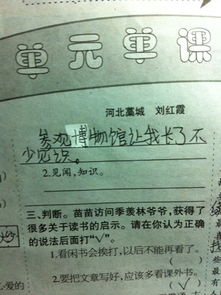 单元单课
河北藁城 刘红霞
参观博物馆让我长了不
少见识。
2.见闻,知识。
三、判断。苗苗访问季羡林爷爷,获得了
很多关于读书的启示。请在你认为正确
的说法后面打“√”。
1.看闲书会挨打,以后不能再看了。
( )
2.要把文章写好,应该多看课外书。